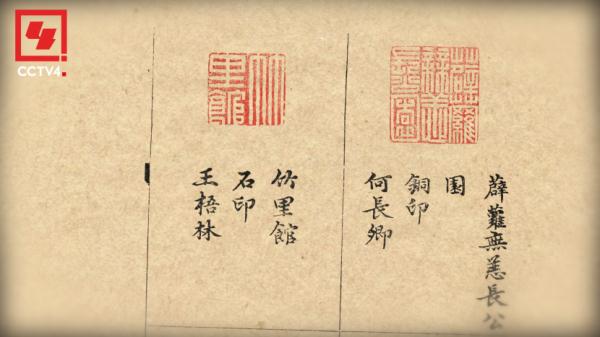 CCTV4
薜蘿無恙長公園
薜蘿無恙長公
園
銅印
何長卿
竹里館
竹里館
石印
王梧林